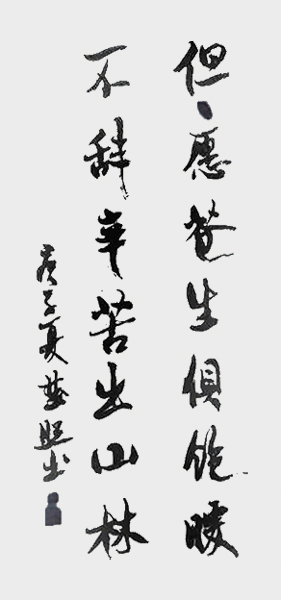 但愿苍生俱饱暖
不辞辛苦出山林